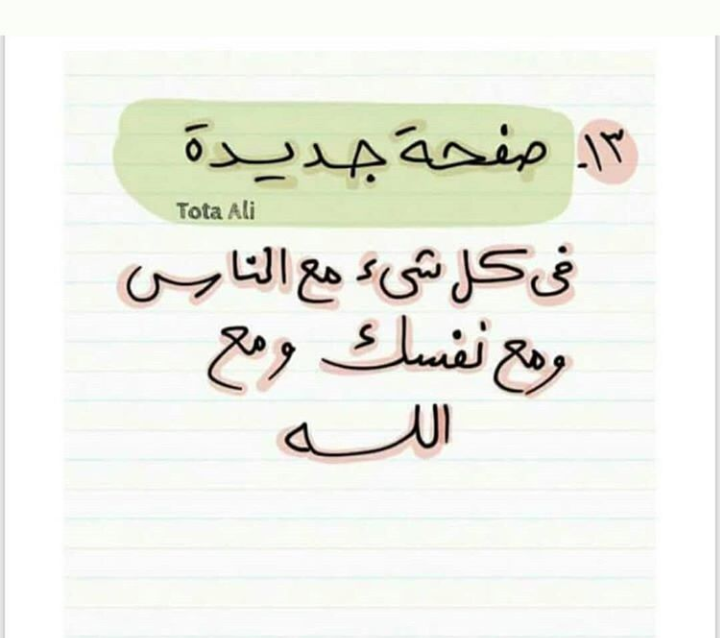 ١٣. صفحة جديدة
Tota Ali
فى كل شىء مع الناس
ومع نفسك ومع
الله